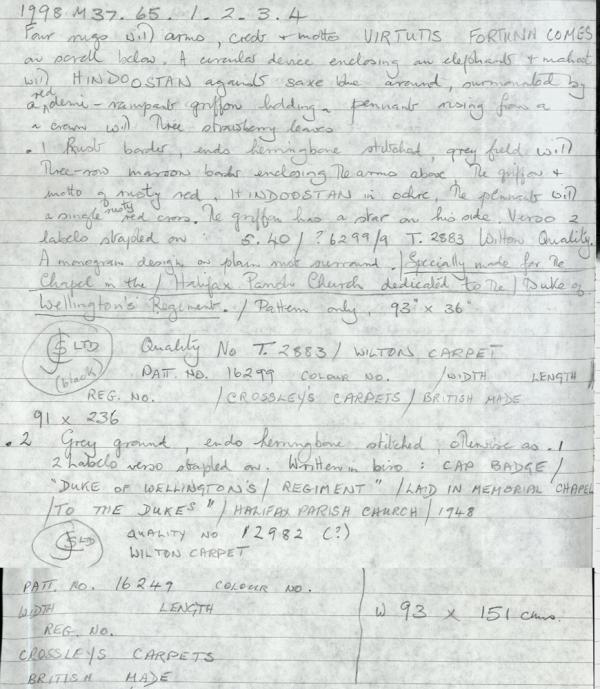 1998 M37. 65. 1. 2. 3. 4
Four rugs with arms, crest & motto VIRTUTIS FORTUNA COMES
on scroll below. A circular device enclosing an elephant & mahout
with HINDOOSTAN against saxe blue around, surmounted by
a red demi-rampant griffon holding a pennant rising from a
a crown with three strawberry leaves
.1 Rust border, ends herringbone stitched, grey field with
three-row maroon border enclosing the arms above. The griffon &
motto of rusty red, HINDOOSTAN in ochre, the pennant with
a single rusty red cross. The griffon has a star on his side. Verso 2
labels stapled on : S.40/?6299/9 T.2883 Wilton Quality.
A monogram design on plain surround. / Specially made for the
Chapel in the / Halifax Parish Church dedicated to the / Duke of
Wellington's Regiment. / Pattern only, 93" x 36"
LTD Quality No T.2883 / WILTON CARPET
(black) PATT. NO. 16299 COLOUR NO. / WIDTH LENGTH /
REG. NO. / CROSSLEY'S CARPETS / BRITISH MADE
91 x 236
.2 Grey ground, ends herringbone stitched, otherwise as .1
2 labels verso stapled on. Written in biro : CAP BADGE /
"DUKE OF WELLINGTON'S / REGIMENT" / LAID IN MEMORIAL CHAPEL
/ TO THE DUKES" / HALIFAX PARISH CHURCH / 1948
LTD QUALITY NO 12982 (?)
WILTON CARPET
PATT. NO. 16249 COLOUR NO.
WIDTH LENGTH
W 93 x 151 cms.
REG. NO.
CROSSLEYS CARPETS
BRITISH MADE